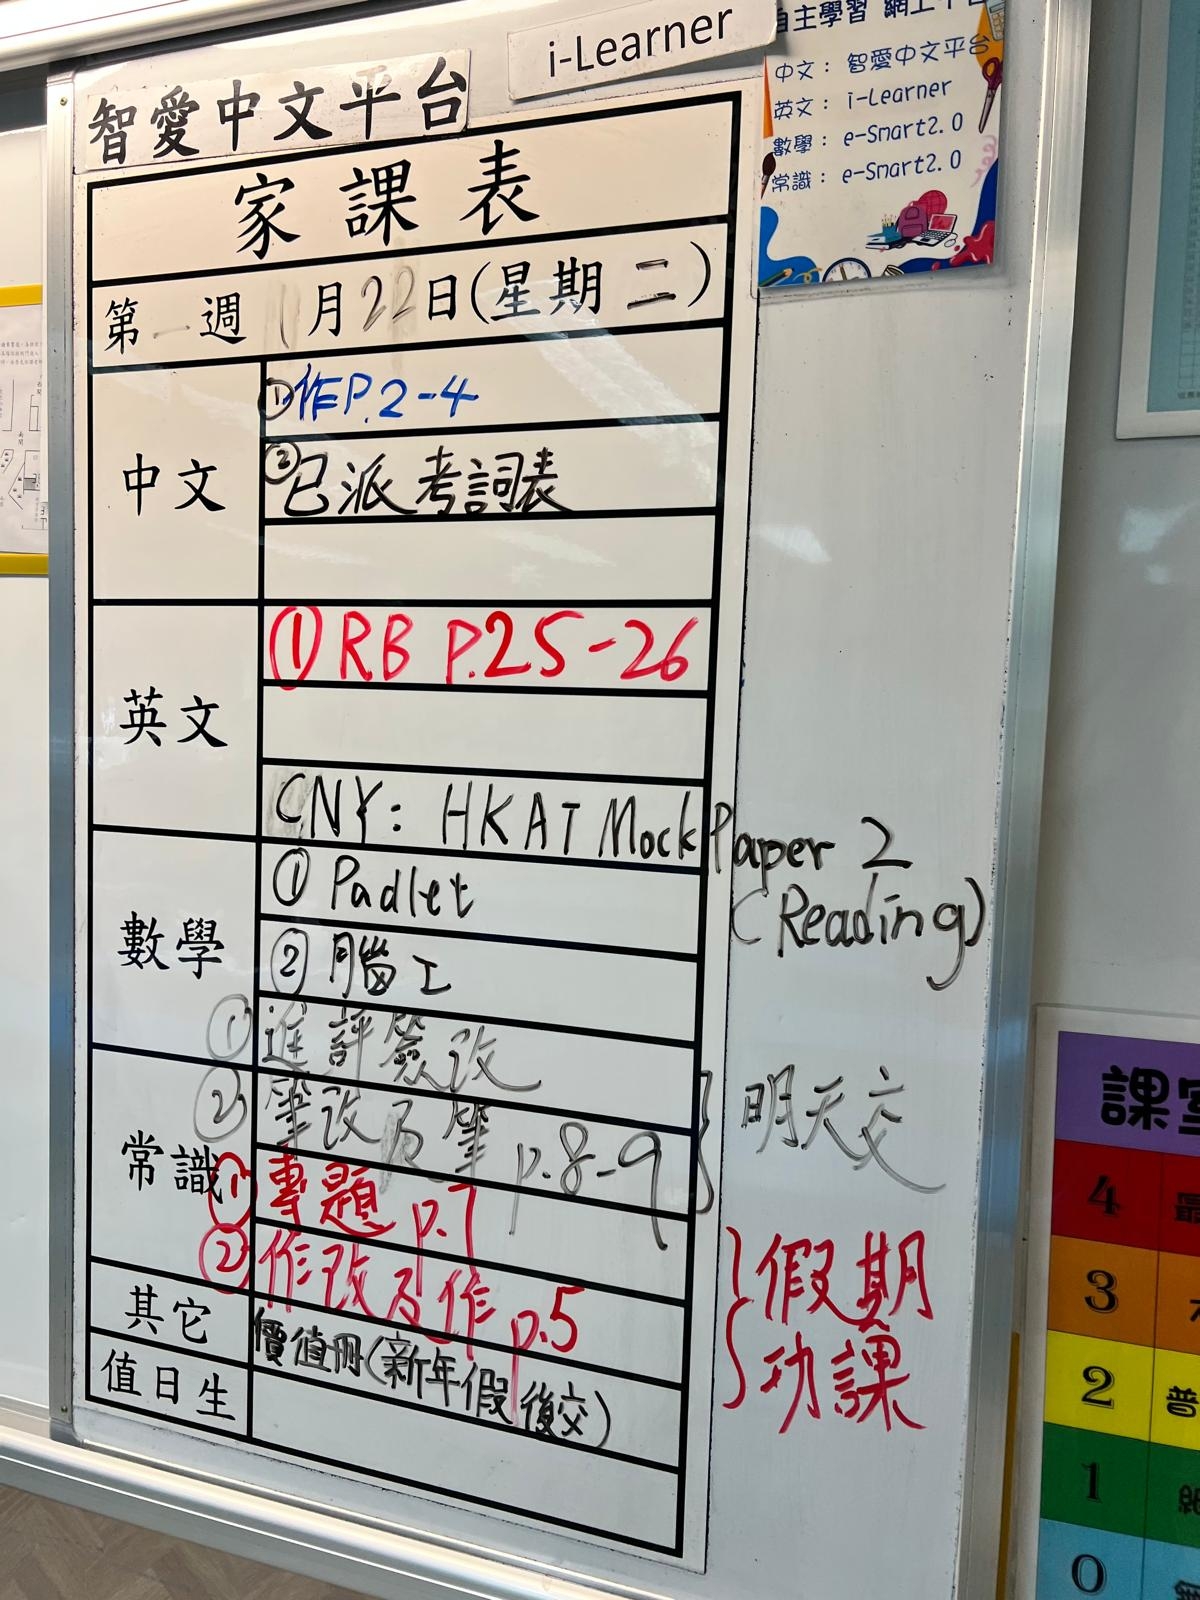 智愛中文平台
i-Learner
自主學習 網上平台
中文： 智愛中文平台
英文： i-Learner
數學： e-Smart2.0
常識： e-Smart2.0
家課表
第一週 1月22日(星期二)
中文
①作P.2-4
②已派考詞表
英文
①RB P.25-26
CNY: HKAT Mock Paper 2
(Reading)
數學
①Padlet
②腦工
常識
①進評簽改
②筆改及筆 p.8-9
明天交
①專題 p.7
②作改及作 p.5
假期
功課
其它
價值冊(新年假後交)
值日生
課室
4
3
2
普
1
0